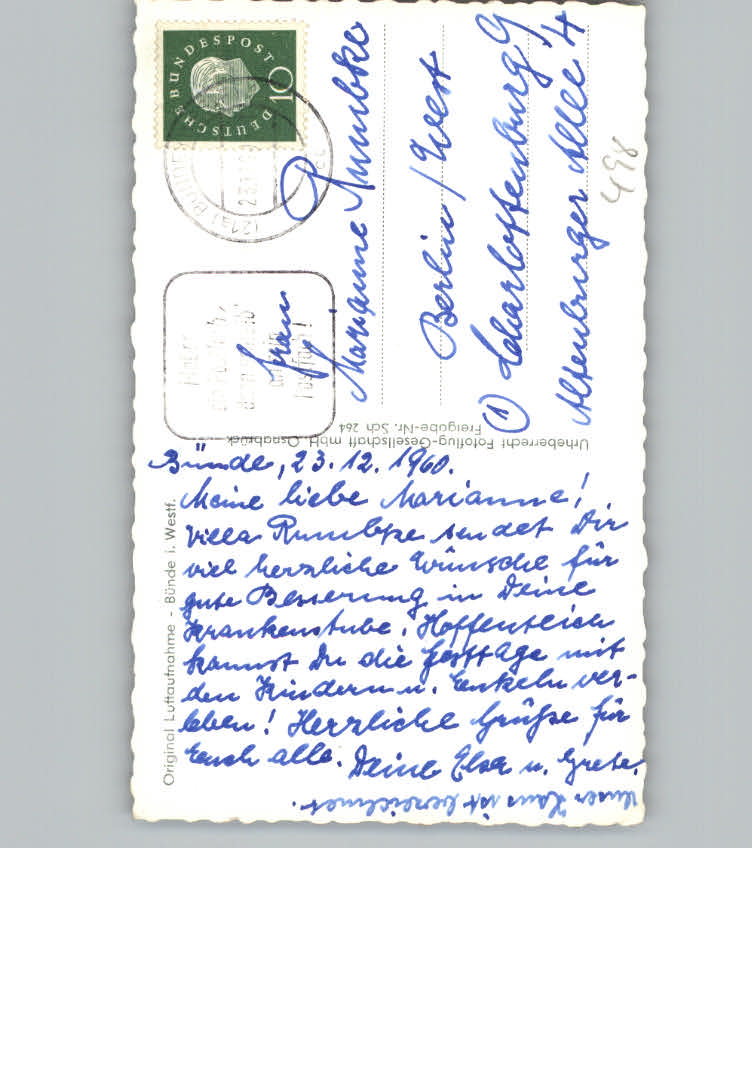 Bünde, 23.12.1960.
Meine liebe Marianne!
Villa Rumbke sendet Dir
viel herzliche Wünsche für
gute Besserung in Deine
Krankenstube. Hoffentlich
kannst Du die Festtage mit
den Kindern u. Enkeln ver-
leben! Herzliche Grüße für
Euch alle. Deine Else u. Grete.
Unser Haus ist bezeichnet.
Frau
Marianne Rumbke
Berlin / West
(1) Charlottenburg 9
Altenburger Allee 4
498
Original Luftaufnahme - Bünde i. Westf.
Urheberrecht Fotoflug-Gesellschaft mbH. Osnabrück
Freigabe-Nr. Sch 264
DEUTSCHE BUNDESPOST
10
(21a) BÜNDE